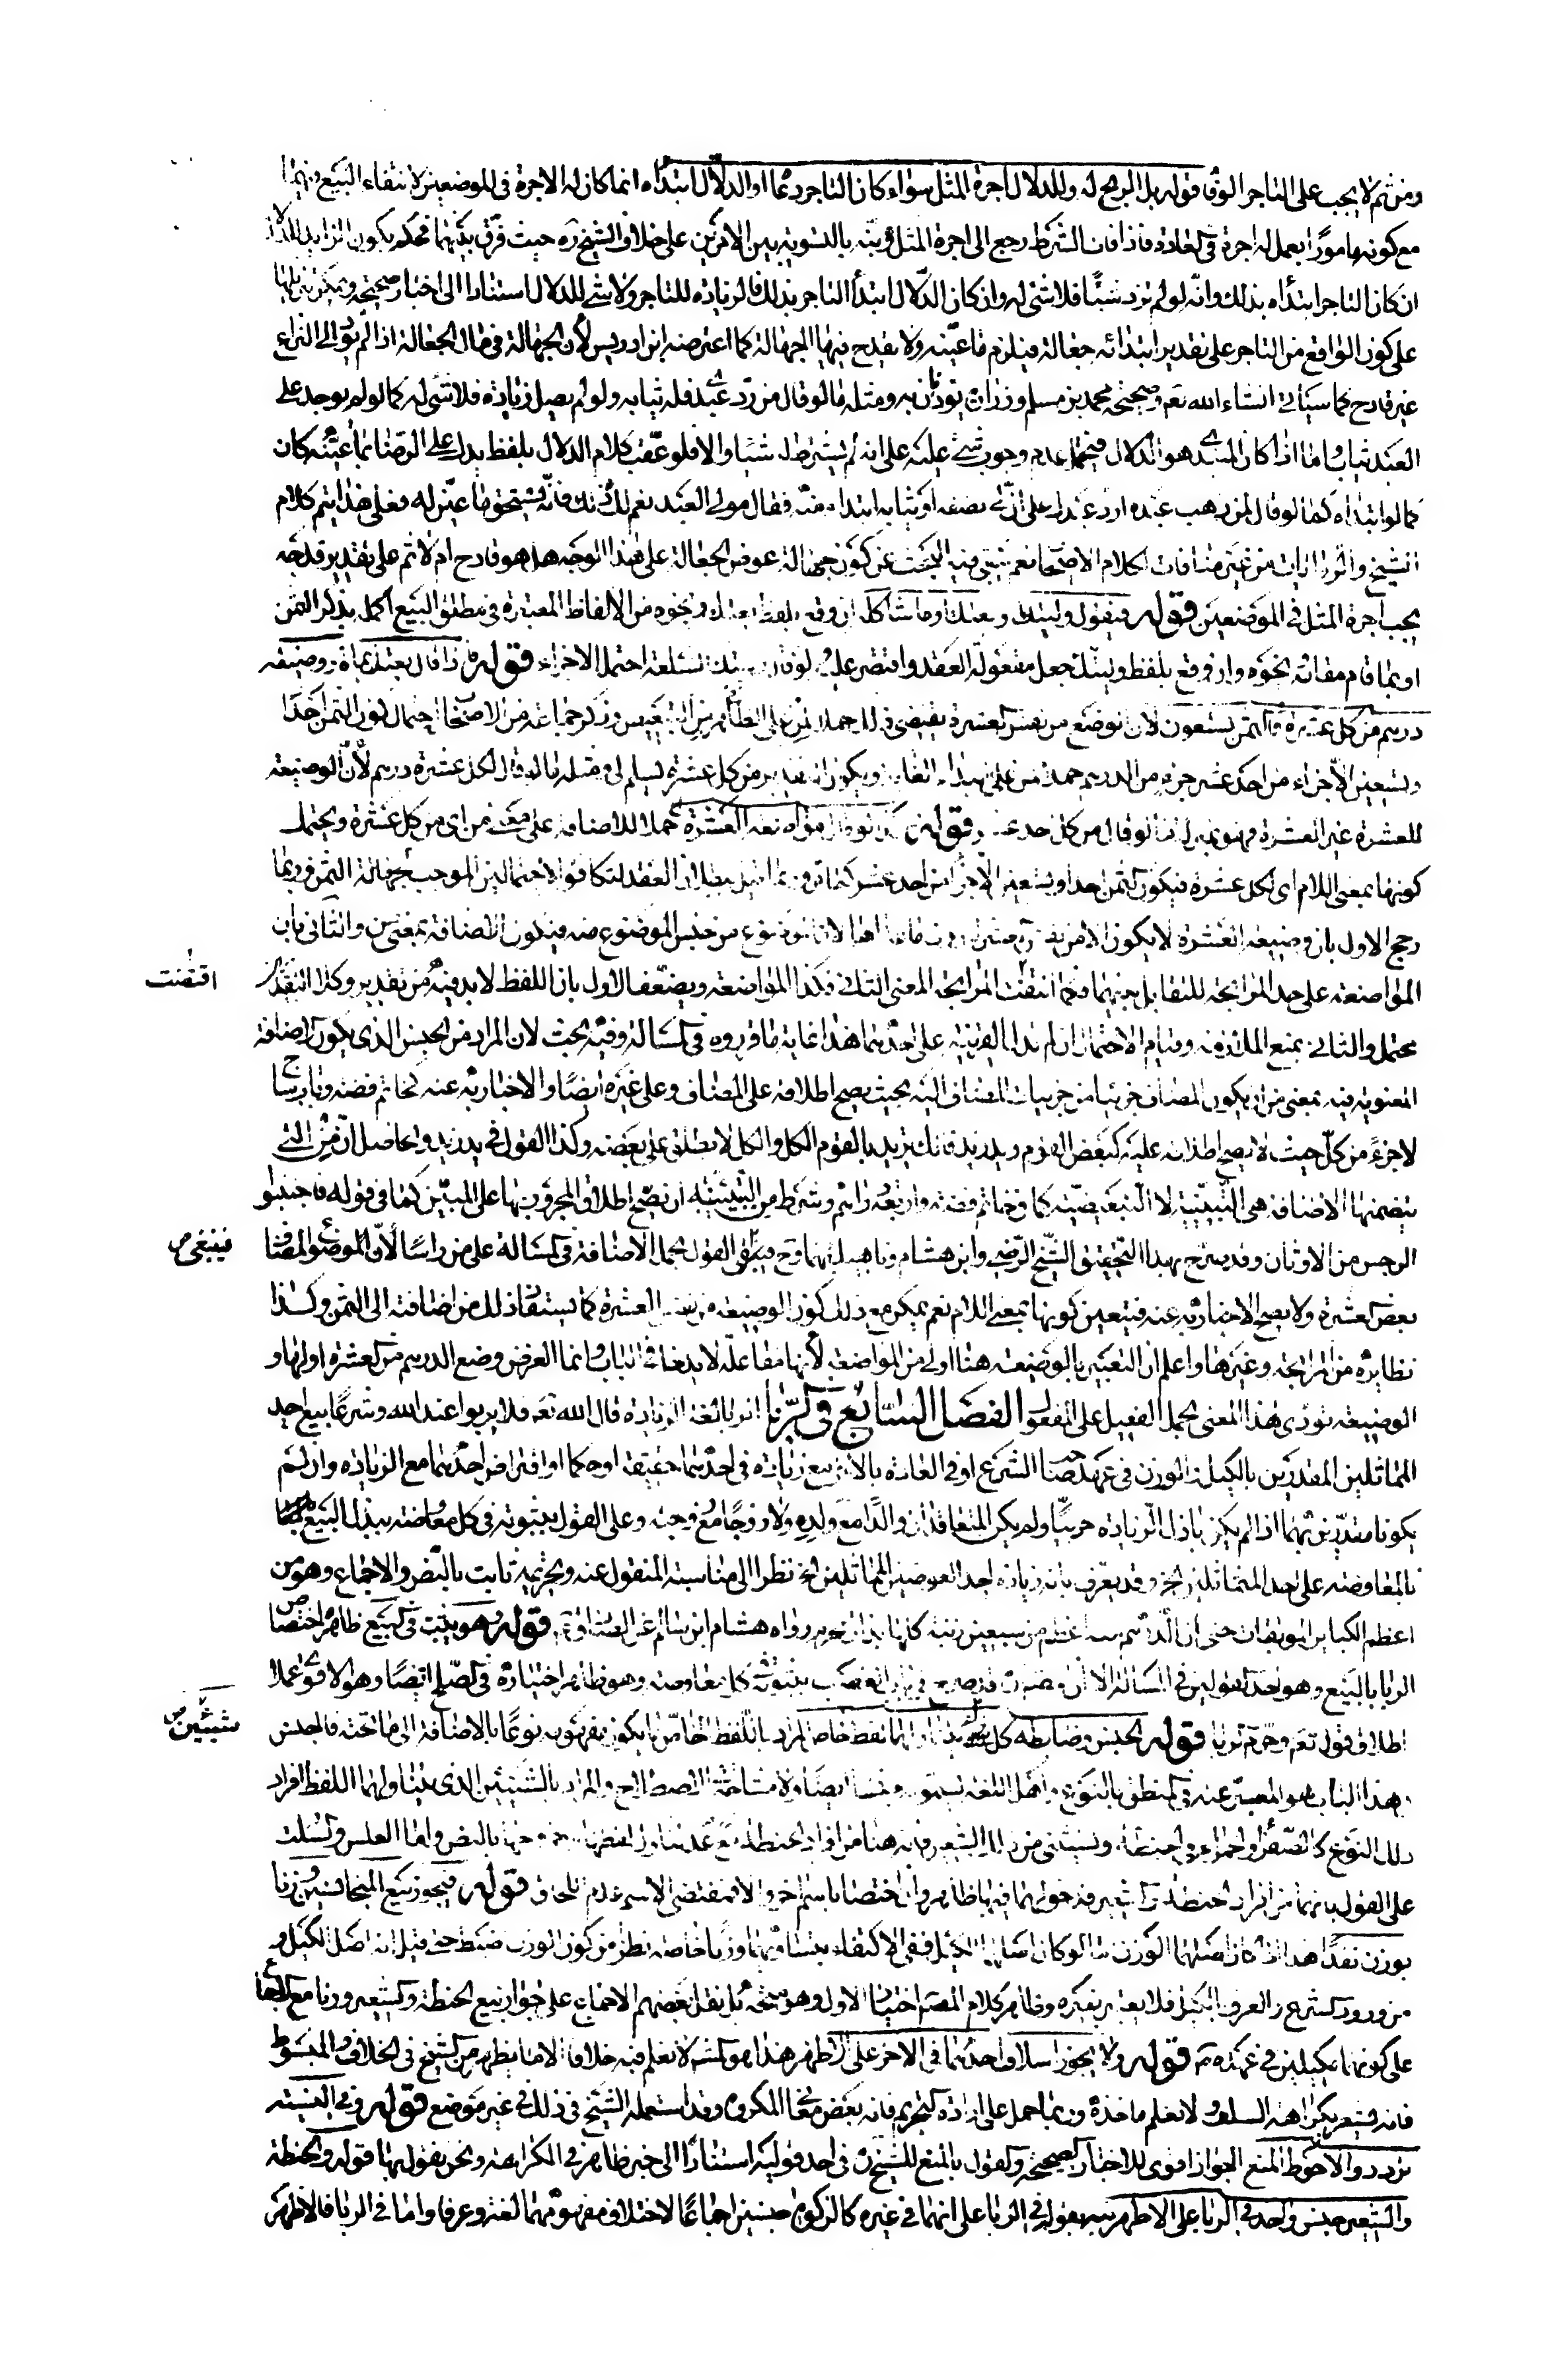 ومن ثم لا يجب على التاجر الوفا قوله بل الربح له وللدلال اجرة المثل سواء كان التاجر دعا او الدلال ابتداه انما كان له الاجرة فى الموضعين لانتفاء البيع
مع كونه مامورا بعمل له اجرة فى العادة فاذا فات الشرط رجع الى اجرة المثل بالتسوية بين الامرين على خلاف الشيخ ره حيث فرق بينهما فحكم بكون الزايد للدلال
ان كان التاجر ابتداه بذلك وانه لو لم يزد شيئا فلا شئ له وان كان الدلال ابتدأ التاجر بذلك فالزيادة للتاجر ولا شئ للدلال استنادا الى اخبار صحيحة ويمكن
على كون الواقع من التاجر على تقدير ابتدائه جعالة فيلزم ما عينه ولا يقدح فيها الجهالة كما اعترضه ابن ادريس لان الجهالة فى مال الجعالة اذا لم يؤد الى النزاع
غير قادح كما سياتى انشاء الله تعم وصحيحة محمد بن مسلم وزرارة يؤذنان به ومثله ما لو قال من رد عبدى فله ثيابه ولو لم يصل زيادة فلا شئ له كما لو لم يوجد على
العبد ثياب واما اذا كان المبتدى هو الدلال فيحتمل عدم وجوب شئ عليه على انه لم يشترط له شيئا والا فلو عقب كلام الدلال بلفظ يدل على الرضا بما عينه كان
كما لو ابتداه كما لو قال لمن ذهب عبده ارد عبدك على ان لى نصفه او ثيابه ابتداء منه فقال مولى العبد نعم لك ذلك فانه يستحق ما عين له فعلى هذا يتم كلام
الشيخ والروايات من غير منافات لكلام الاصحاب نعم يبقى فيه البحث عن كون جهالة عوض الجعالة على هذا الوجه هل هو قادح ام لا ثم على تقدير قدحه
يجب اجرة المثل فى الموضعين قوله فيقول وليتك وبعتك او ما شاكله ان وقع بلفظ بعتك ونحوه من الالفاظ المعتبرة فى مطلق البيع اكمل بذكر الثمن
او بما قام مقامه نحوه وان وقع بلفظ وليتك جعل مفعوله العقد واقتصر عليه ولو قال وليتك السلعة احتمل الاجزاء قوله فاذا قال بعتك بماة ووضيعة
درهم من كل عشرة فالثمن تسعون لان الموضع من نفس العشرة يقتضى ذلك حملا لمن على الظاهر من التبعيض وذكر جماعة من الاصحاب احتمال كون الثمن احدا
وتسعين الا جزاء من احد عشر جزء من الدرهم حملا لمن على ابتداء الغاية ويكون التقدير من كل عشرة تسلم لى ومثله ما لو قال لكل عشرة درهم لان الوضيعة
للعشرة غير العشرة فهو بمنزلة ما لو قال من كل احد عشر قوله وكذا لو قال مواضعة العشرة حملا للاضافة على معنى من اى من كل عشرة ويحتمل
كونها بمعنى اللام اى لكل عشرة فيكون الثمن احدا وتسعين الا جزء من احد عشر كما تر وربما قيل ببطلان العقد لتكافؤ الاحتمالين الموجب لجهالة الثمن وربما
رجح الاول بان وضيعة العشرة لا يكون الا من نفس العشرة دون ما عداها لان الموضوع من جنس الموضوع منه فيكون الاضافة بمعنى من والثانى بان
المواضعة على حد المرابحة للتقابل بينهما فكما اقتضت المرابحة المعنى الثانى فكذا المواضعة ويضعف الاول بان اللفظ لا بد فيه من تقدير وكلا التقديرين
محتمل والثانى بمنع الملازمة وقيام الاحتمال ان لم يدل القرينة على احدهما هذا غاية ما قرروه فى المسالة وفيه بحث لان المراد من الجنس الذى يكون الاضافة
المعنوية فيه بمعنى من ان يكون المضاف جزئيا من جزييات المضاف اليه بحيث يصح اطلاقه على المضاف وعلى غيره ايضا والاخبار به عنه كخاتم فضة وباب ساج
لا جزء من كل حيث لا يصح اطلاقه عليه كبعض القوم ويد زيد فانك تريد بالقوم الكل والكل لا يطلق على بعضه وكذا القول فى يد زيد والحاصل ان من التى
يتضمنها الاضافة هى التبيينية لا التبعيضية كما فى خاتم فضة واربعة دراهم وشرط من التبيينية ان يصح اطلاق المجرور بها على المبين كما فى قوله فاجتنبوا
الرجس من الاوثان وقد صرح بهذا التحقيق الشيخ الرضى وابن هشام وناهيك بهما وح فينبغى القول بحمل الاضافة فى المسالة على من راسا لان الموضوع المضاف
بعض العشرة ولا يصح الاخبار به عنه فيتعين كونها بمعنى اللام نعم يمكن مع ذلك كون الوضيعة من نفس العشرة كما يستفاد ذلك من اضافته الى الثمن وكذا
نظايره من المرابحة وغيرها واعلم ان التعبير بالوضيعة هنا اولى من المواضعة لانها مفاعلة لا يدعا فى الباب وانما الغرض وضع الدرهم من العشرة او لها و
الوضيعة تؤدى هذا المعنى بحمل الفعيل على المفعول الفصل السابع فى الربا الربا لغة الزيادة قال الله تعم فلا يربوا عند الله وشرعا بيع احد
المتماثلين المقدرين بالكيل او الوزن فى عهد صاحب الشرع او فى العادة بالاخر مع زيادة فى احدهما حقيقة او حكما او اقتراض احدهما مع الزيادة وان لم
يكونا مقدرين بهما اذا لم يكن باذل الزيادة حربيا ولم يكن المتعاقدان والدا مع ولده ولا زوجا مع زوجته وعلى القول بثبوته فى كل معاوضة يبدل البيع
بالمعاوضة على احد المتماثلين الخ وقد يعرف بانه زيادة احد العوضين المتماثلين الخ نظرا الى مناسبة المنقول عنه وتحريمه ثابت بالنص والاجماع وهو من
اعظم الكباير الموبقات حتى ان الدرهم منه اعظم من سبعين زنية كلها بذات محرم رواه هشام ابن سالم عن الصادق ع قوله وهو يثبت فى البيع ظاهره اختصاص
الربا بالبيع وهو احد القولين فى المسالة الا ان المصنف قد صرح فى باب الغصب بثبوته فى كل معاوضة وهو ظاهر اختياره فى الصلح ايضا وهو الاقوى عملا
اطلاق قوله تعم وحرم الربا قوله الجنس وضابطه كل شيئين يتناولهما لفظ خاص المراد باللفظ الخاص ما يكون مفهومه نوعا بالاضافة الى ما تحته فالجنس
بهذا الباب هو المعبر عنه فى المنطق بالنوع واهل اللغة يسمونه جنسا ايضا ولا مشاحة فى الاصطلاح والمراد بالشيئين الذى يتناولهما اللفظ افراد
ذلك النوع كالصفراء والحمراء فى الحنطة ويستثنى من ذلك الشعير فانه هنا من افراد الحنطة مع عدم تناول لفظها له وخرج بالنص واما العلس والسلت
على القول بانهما من افراد الحنطة والشعير فدخولهما فيها ظاهر وان اختصا باسم اخر والا فمقتضى الاسم عدم الالحاق قوله فيجوز بيع المتجانسين وزنا
بوزن نقدا هذا اذا كان اصلهما الوزن اما لو كان اصلهما الكيل ففى الاكتفاء بتساويهما وزنا خاصة نظر من كون الوزن اضبط حتى قيل انه اصل الكيل و
من ورود الشرع والعرف بالكيل فلا يعتبر بغيره وظاهر كلام المصنف اختيار الاول وهو متجه بل نقل بعضهم الاجماع على جواز بيع الحنطة والشعير وزنا مع الاجماع
على كونهما مكيلين فى عهده ص قوله ولا يجوز اسلاف احدهما فى الاخر على الاظهر هذا هو المشهور لا نعلم فيه خلافا الا ما يظهر من الشيخ فى الخلاف والمبسوط
فانه يشعر بكراهة السلف ولا نعلم ماخذه وربما حمل على ارادة التحريم فانه بعض معانى المكروه وقد استعمله الشيخ فى ذلك فى غير موضع قوله وفى النسيئة
تردد والاحوط المنع الجواز اقوى للاخبار الصحيحة والقول بالمنع للشيخ ره فى احد قوليه استنادا الى خبر ظاهر فى الكراهة ونحن نقول بها قوله والحنطة
والشعير جنس واحد فى الربا على الاظهر نبه بقوله فى الربا على انهما فى غيره كالزكوة جنسين اجماعا لاختلاف مفهومهما لغة وعرفا واما فى الربا فالاظهر
اقتضت
فينبغى ص
شيئين ص